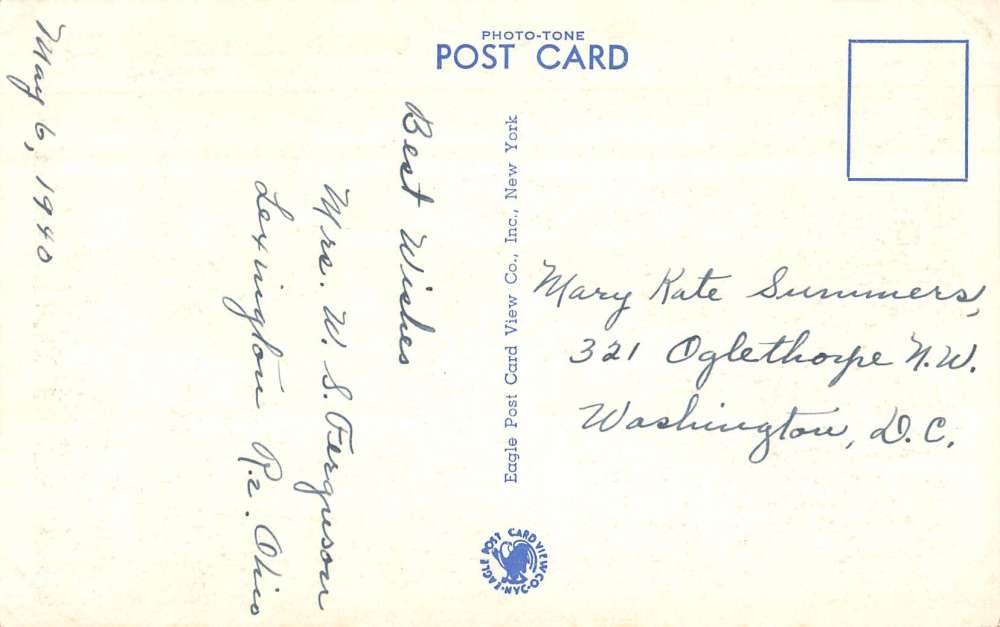 PHOTO-TONE
POST CARD
May 6, 1940
Best Wishes
Mrs. W. S. Ferguson
Lexington R.2. Ohio
Eagle Post Card View Co., Inc., New York
Mary Kate Summers,
321 Oglethorpe N.W.
Washington, D.C.
EAGLE POST CARD VIEW CO. NYC